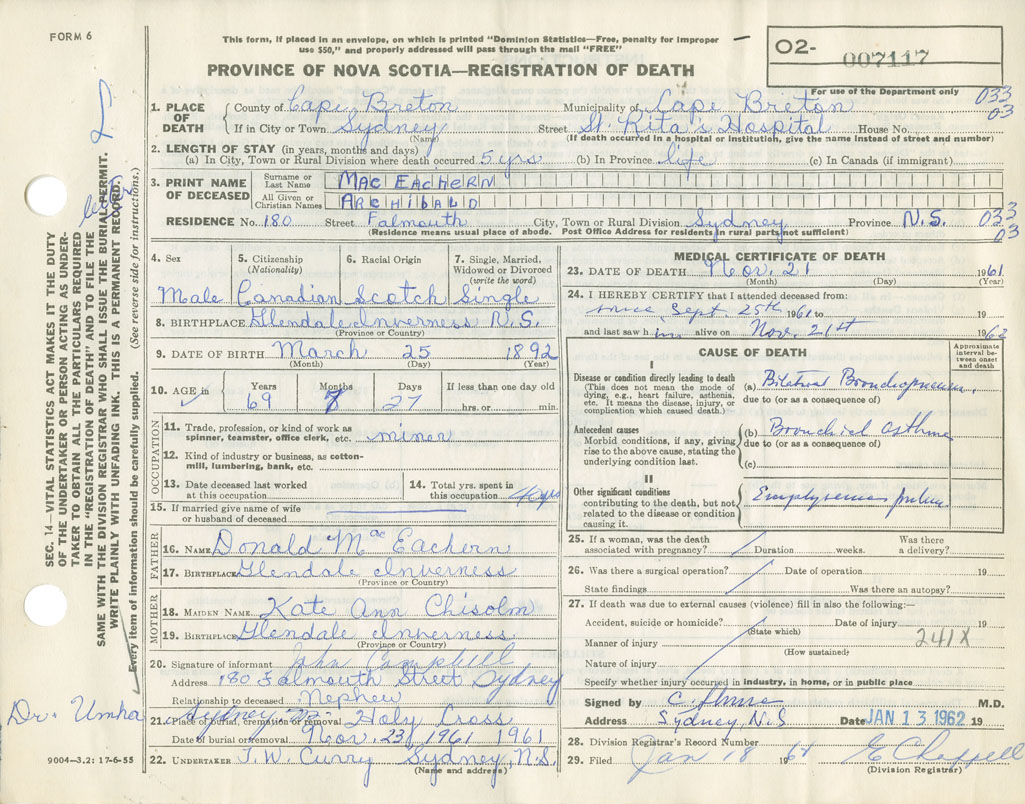 FORM 6
This form, if placed in an envelope, on which is printed "Dominion Statistics—Free, penalty for improper
use $50," and properly addressed will pass through the mail "FREE"
PROVINCE OF NOVA SCOTIA—REGISTRATION OF DEATH
O2- 007117
For use of the Department only
033
03
1. PLACE OF DEATH County of Cape Breton Municipality of Cape Breton
If in City or Town Sydney Street St. Rita's Hospital House No.
(Name) (If death occurred in a hospital or institution, give the name instead of street and number)
2. LENGTH OF STAY (in years, months and days)
(a) In City, Town or Rural Division where death occurred 5 yrs (b) In Province life (c) In Canada (if immigrant)
3. PRINT NAME OF DECEASED Surname or Last Name MAC EACHERN
All Given or Christian Names ARCHIBALD
RESIDENCE No. 180 Street Falmouth City, Town or Rural Division Sydney Province N.S. 033
03
(Residence means usual place of abode. Post Office Address for residents in rural parts not sufficient)
4. Sex 5. Citizenship (Nationality) 6. Racial Origin 7. Single, Married, Widowed or Divorced (write the word)
Male Canadian Scotch Single
8. BIRTHPLACE Glendale Inverness N.S.
(Province or Country)
9. DATE OF BIRTH March 25 1892
(Month) (Day) (Year)
10. AGE in Years Months Days If less than one day old
69 27 hrs. or min.
OCCUPATION
11. Trade, profession, or kind of work as
spinner, teamster, office clerk, etc. miner
12. Kind of industry or business, as cotton-
mill, lumbering, bank, etc.
13. Date deceased last worked
at this occupation
14. Total yrs. spent in
this occupation 40 yrs
15. If married give name of wife
or husband of deceased
FATHER
16. NAME Donald Mac Eachern
17. BIRTHPLACE Glendale Inverness
(Province or Country)
MOTHER
18. MAIDEN NAME Kate Ann Chisolm
19. BIRTHPLACE Glendale Inverness
(Province or Country)
20. Signature of informant John Campbell
Address 180 Falmouth Street Sydney
Relationship to deceased Nephew
21. Place of burial, cremation or removal Sydney Holy Cross
Date of burial or removal Nov. 23 1961 1961
22. UNDERTAKER T. W. Curry Sydney, N.S.
(Name and address)
MEDICAL CERTIFICATE OF DEATH
23. DATE OF DEATH Nov. 21 1961
(Month) (Day) (Year)
24. I HEREBY CERTIFY that I attended deceased from:
since Sept 25th 1961 to 19
and last saw him alive on Nov. 21st 1962
CAUSE OF DEATH
Approximate
interval be-
tween onset
and death
I
Disease or condition directly leading to death
(This does not mean the mode of
dying, e.g., heart failure, asthenia,
etc. It means the disease, injury, or
complication which caused death.)
(a) Bilateral Bronchopneumonia
due to (or as a consequence of)
Antecedent causes
Morbid conditions, if any, giving
rise to the above cause, stating the
underlying condition last.
(b) Bronchial Asthma
due to (or as a consequence of)
(c)
II
Other significant conditions
contributing to the death, but not
related to the disease or condition
causing it.
Emphysema
25. If a woman, was the death
associated with pregnancy? Duration weeks. Was there
a delivery?
26. Was there a surgical operation? Date of operation 19
State findings Was there an autopsy?
27. If death was due to external causes (violence) fill in also the following:—
Accident, suicide or homicide? Date of injury 19
(State which)
Manner of injury 241X
(How sustained)
Nature of injury
Specify whether injury occurred in industry, in home, or in public place
Signed by M.D.
Address Sydney, N.S Date JAN 13 1962 19
28. Division Registrar's Record Number
29. Filed Jan 18 1962 E Chappell
(Division Registrar)
SEC. 14—VITAL STATISTICS ACT MAKES IT THE DUTY
OF THE UNDERTAKER OR PERSON ACTING AS UNDER-
TAKER TO OBTAIN ALL THE PARTICULARS REQUIRED
IN THE "REGISTRATION OF DEATH" AND TO FILE THE
SAME WITH THE DIVISION REGISTRAR WHO SHALL ISSUE THE BURIAL PERMIT.
WRITE PLAINLY WITH UNFADING INK. THIS IS A PERMANENT RECORD.
Every item of information should be carefully supplied. (See reverse side for instructions.)
Dr. Umha
9004—3,2: 17-6-55